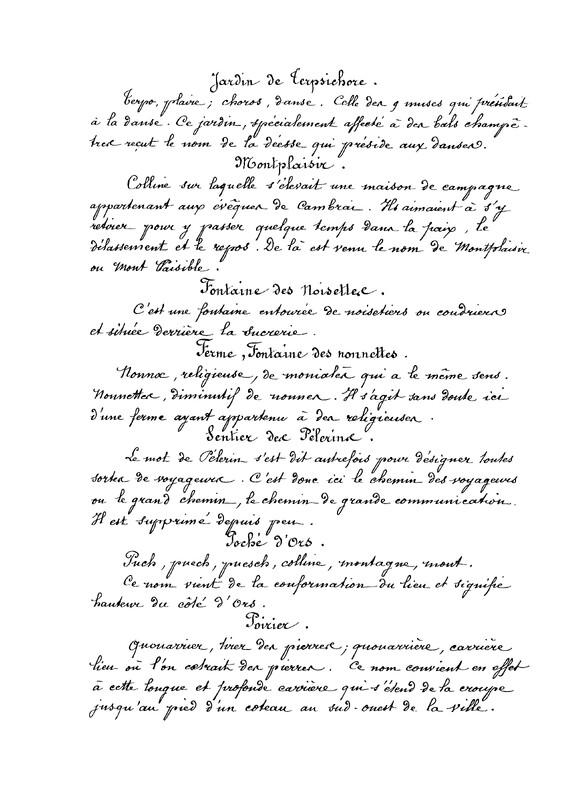 Jardin de Terpsichore.
Terpo, plaire; choros, danse. Celle des 9 muses qui présidait
à la danse. Ce jardin, spécialement affecté à des bals champê-
tres reçut le nom de la déesse qui préside aux danses.
Montplaisir.
Colline sur laquelle s'élevait une maison de campagne
appartenant aux évêques de Cambrai. Ils aimaient à s'y
retirer pour y passer quelque temps dans la paix, le
délassement et le repos. De là est venu le nom de Montplaisir
ou Mont Paisible.
Fontaine des Noisettes.
C'est une fontaine entourée de noisetiers ou coudriers
et située derrière la sucrerie.
Ferme, Fontaine des nonnettes.
Nonnæ, religieuse, de moniales qui a le même sens.
Nonnettes, diminutif de nonnes. Il s'agit sans doute ici
d'une ferme ayant appartenu à des religieuses.
Sentier des Pèlerins.
Le mot de Pèlerin s'est dit autrefois pour désigner toutes
sortes de voyageurs. C'est donc ici le chemin des voyageurs
ou le grand chemin, le chemin de grande communication.
Il est supprimé depuis peu.
Poché d'Ors.
Puch, puech, puesch, colline, montagne, mont.
Ce nom vient de la conformation du lieu et signifie
hauteur du côté d'Ors.
Poirier.
Quouarrier, tirer des pierres; quouarrière, carrière
lieu où l'on extrait des pierres. Ce nom convient en effet
à cette longue et profonde carrière qui s'étend de la croupe
jusqu'au pied d'un coteau au sud-ouest de la ville.